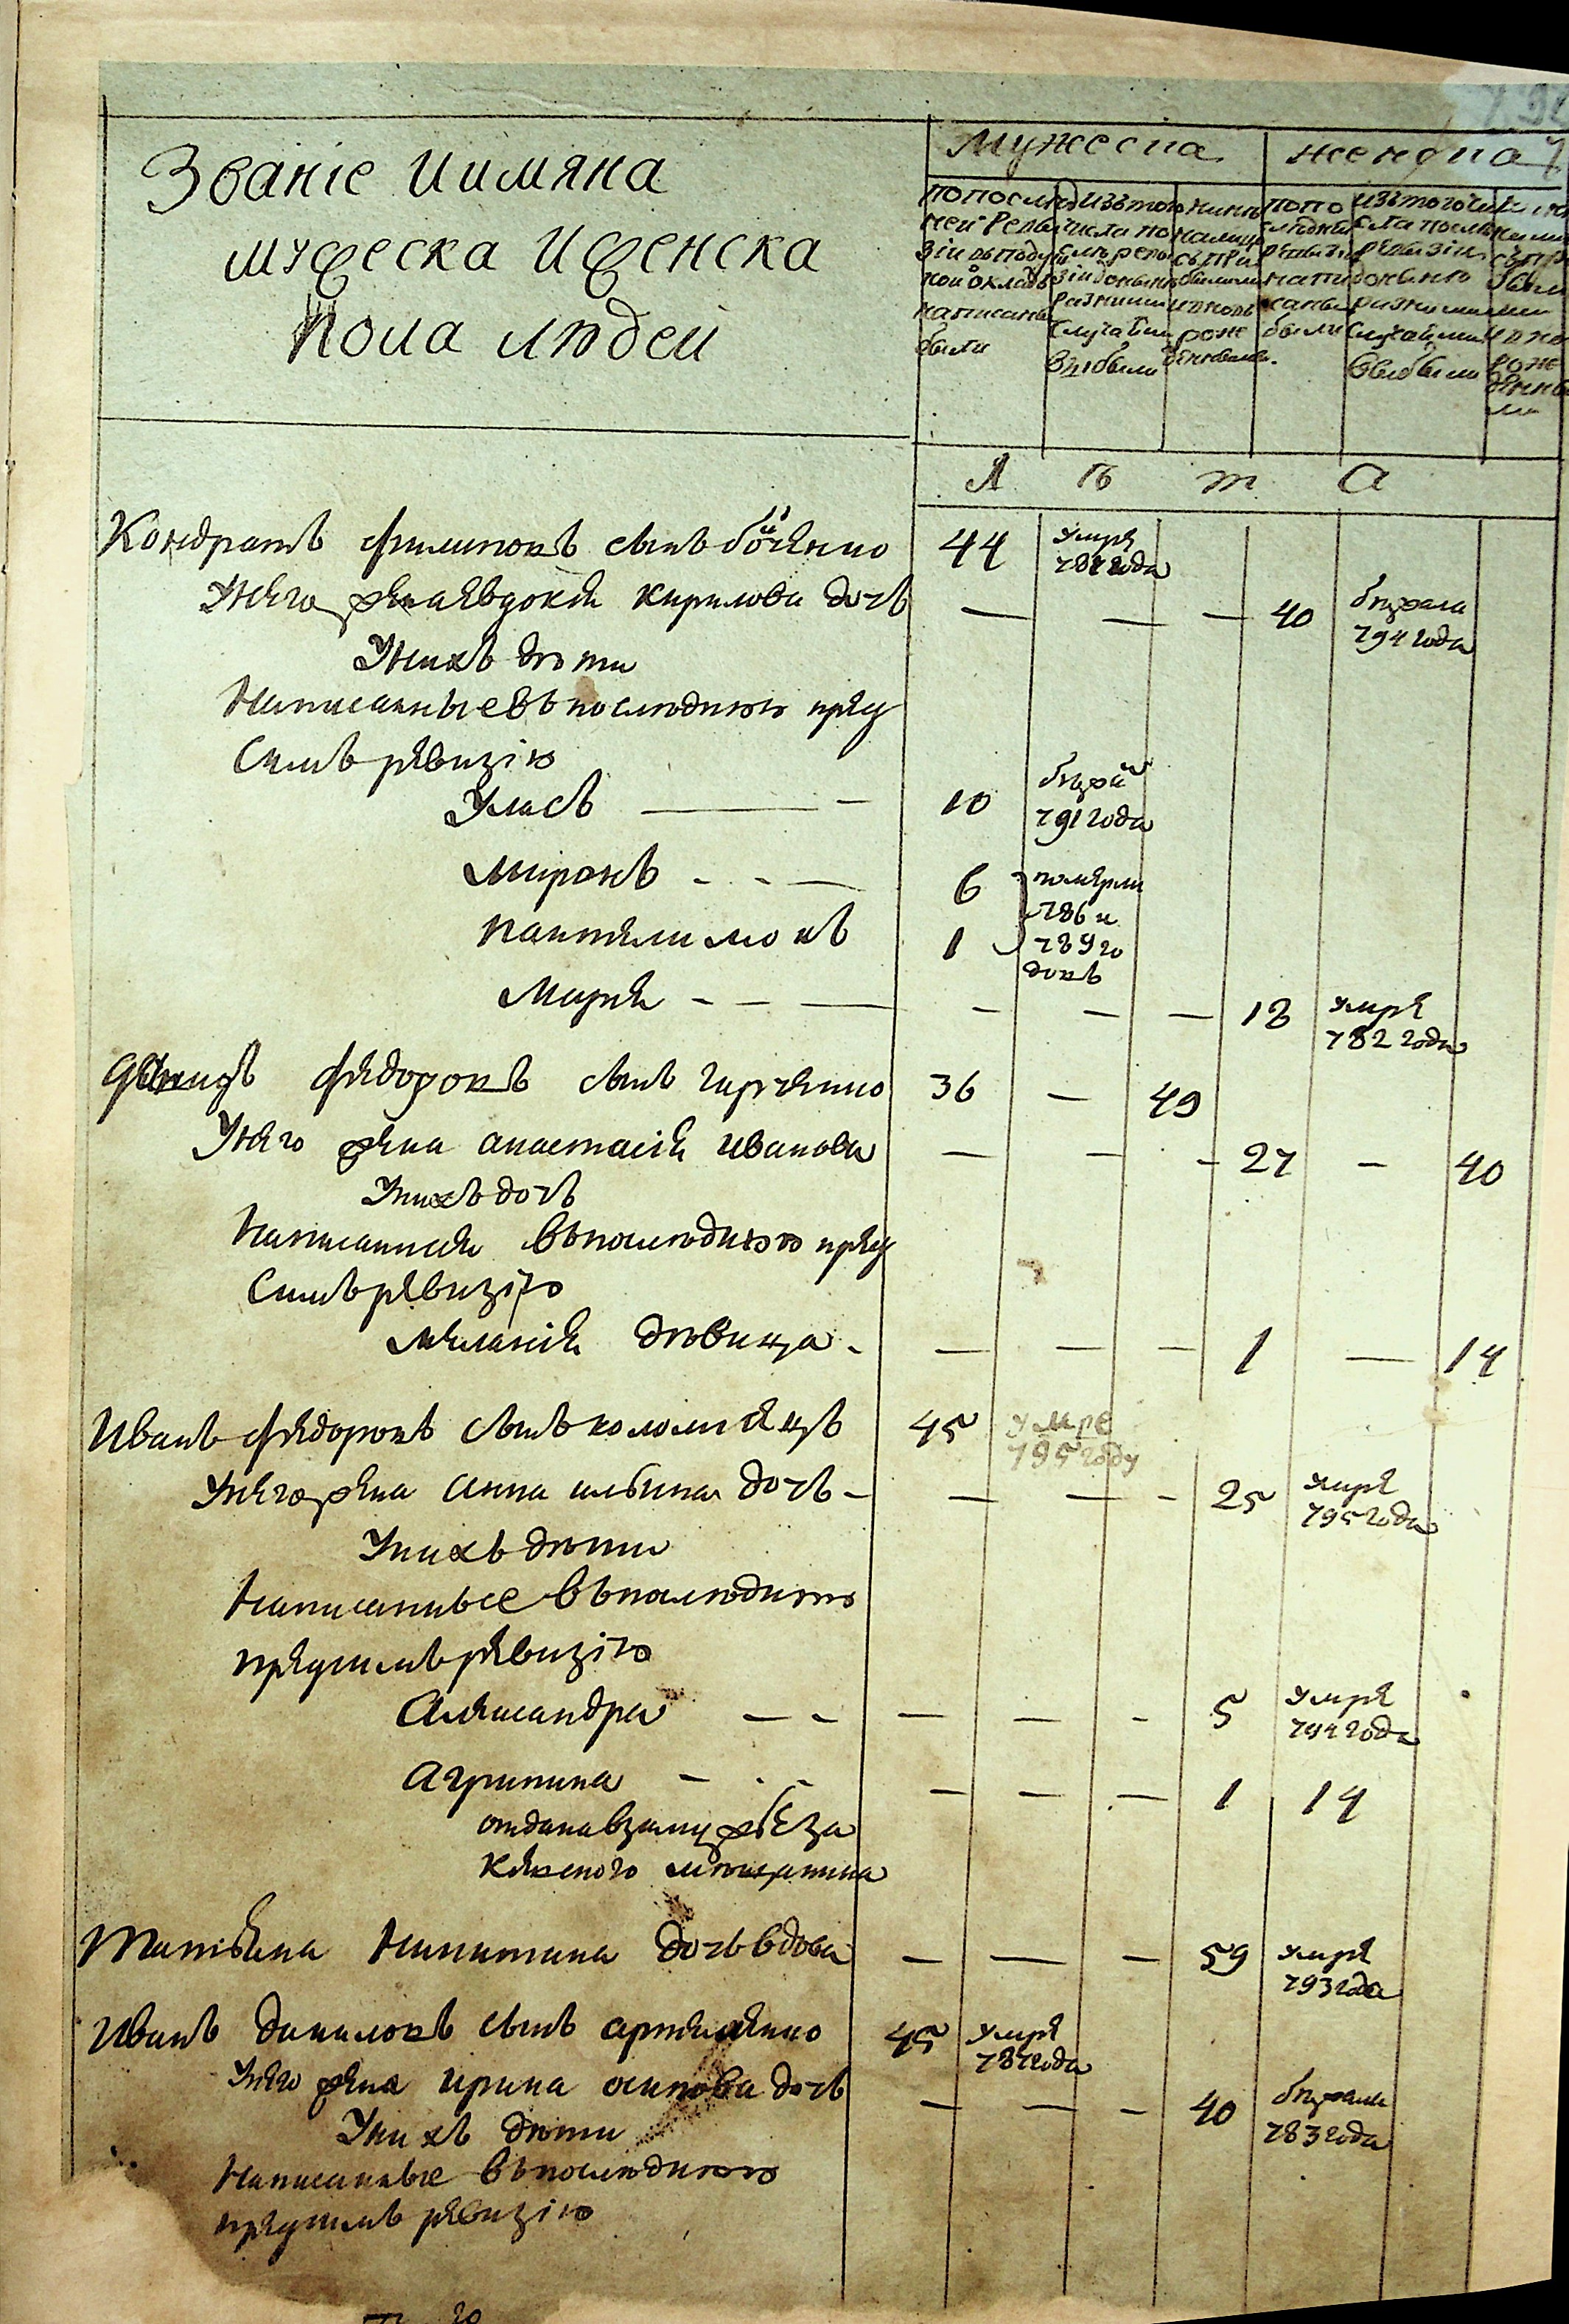 Званіе Иимяна
мужеска Иженска
пола людей
Мужеска
женска
попослед
ней Реви
зіи вподуш
ной окладъ
написаны
были
Изътого
числа по
слѣ реви
зіи донынѣ
разными
случаями
выбыли
нинѣ
налицо
съпри
былыми
ивновь
рож
денными
попо
слѣдней
ревизіи
напи
саны
были
изътогочи
сла послѣ
ревизіи
донынѣ
разными
случаями
выбыли
Л Ѣ т а
Кондратъ филиповъ сынъ 44 умре
787 года
Унего жена Евдокия кирилова дочь — — — 40 бѣжала
794 года
Унихъ дѣти
Написанные въ последнюю пред
Симъ ревизію
Уласъ — 10 бѣжал
791 года
Миронъ - - — 6 померли
786 и
Пантелимонъ 1 789 го
довъ
Мария - — — — — — 18 умре
782 года
федоровъ сынъ 36 — 49
Унего жена анастасія иванова — — - 27 — 40
Унихъ дочь
Написанная впоследнюю пред
Симъ ревизіію
Меланія девица - — — — 1 — 14
Иванъ федоровъ сынъ коломиецъ 45 умре
795 году
Унего жена Анна ильина дочь - — — - 25 умре
795 года
Унихъ дѣти
Написанные въ последнюю
предсимъ ревизію
Александра — - — — - 5 умре
794 года
Агрипина — - - — — — 1 14
отдана взамужъ за
мѣщанина
Татіяна Никитина дочь вдова — — — 59 умре
793 года
Иванъ даниловъ сынъ артеменко 45 умре
787 года
Унего жена ирина осипова дочь — — - 40 бѣжала
783 года
Унихъ дѣти
Написанные впоследнюю
предсимъ ревизію